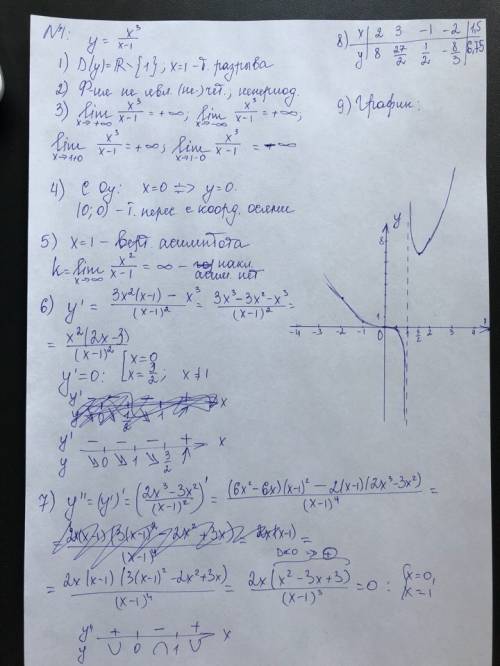 №1: y = x³/(x-1)
1) D(y)=R\{1}, x=1 - т. разрыва
2) Ф-ия не явл. (не-)чёт., непериод.
3) lim x→+∞ x³/(x-1) = +∞; lim x→-∞ x³/(x-1) = +∞;
lim x→1+0 x³/(x-1) = +∞; lim x→1-0 x³/(x-1) = -∞
4) С Oy: x=0 => y=0.
(0;0) - т. перес с коорд. осями
5) x=1 - верт. асимптота
k = lim x→∞ x²/(x-1) = ∞ - накл. асим. нет
6) y' = (3x²(x-1) - x³)/(x-1)² = (3x³-3x²-x³)/(x-1)² =
= x²(2x-3)/(x-1)²
y'=0: [x=0 x=3/2; x≠1
y' - - - + x
y ↘ 0 ↘ 1 ↘ 3/2 ↗
7) y''=(y')' = ((2x³-3x²)/(x-1)²)' = ((6x²-6x)(x-1)² - 2(x-1)(2x³-3x²))/(x-1)⁴ =
= 2x(x-1)(3(x-1)²-2x²+3x)/(x-1)⁴ = 2x(x²-3x+3)/(x-1)³ = 0 : {x=0, x=1
D<0 → ⊕
y'' + - + x
y ∪ 0 ∩ 1 ∪
8) x 2 3 -1 -2 1,5
y 8 27/2 1/2 -8/3 6,75
9) График:
y
8
1
-4 -3 -2 -1 0 1 3/2 2 3 4